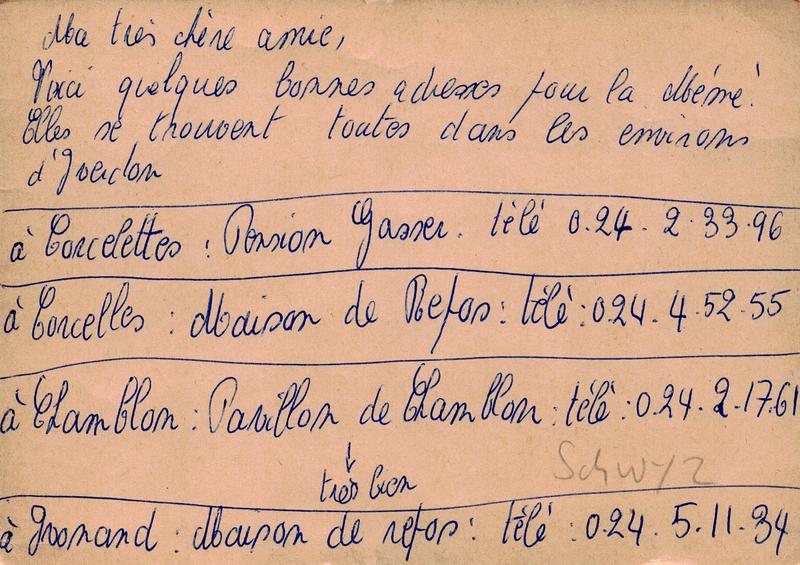 Ma très chère amie,
Voici quelques bonnes adresses pour la Mémé.
Elles se trouvent toutes dans les environs
d'Yverdon
à Corcelettes : Pension Gasser. télé 0.24. 2.33.96
à Corcelles : Maison de Repos : télé : 0.24. 4.52.55
à Chamblon : Pavillon de Chamblon : télé : 0.24. 2.17.61
↓
très bon
Schwyz
à Yvonand : Maison de repos : télé : 0.24. 5.11.34